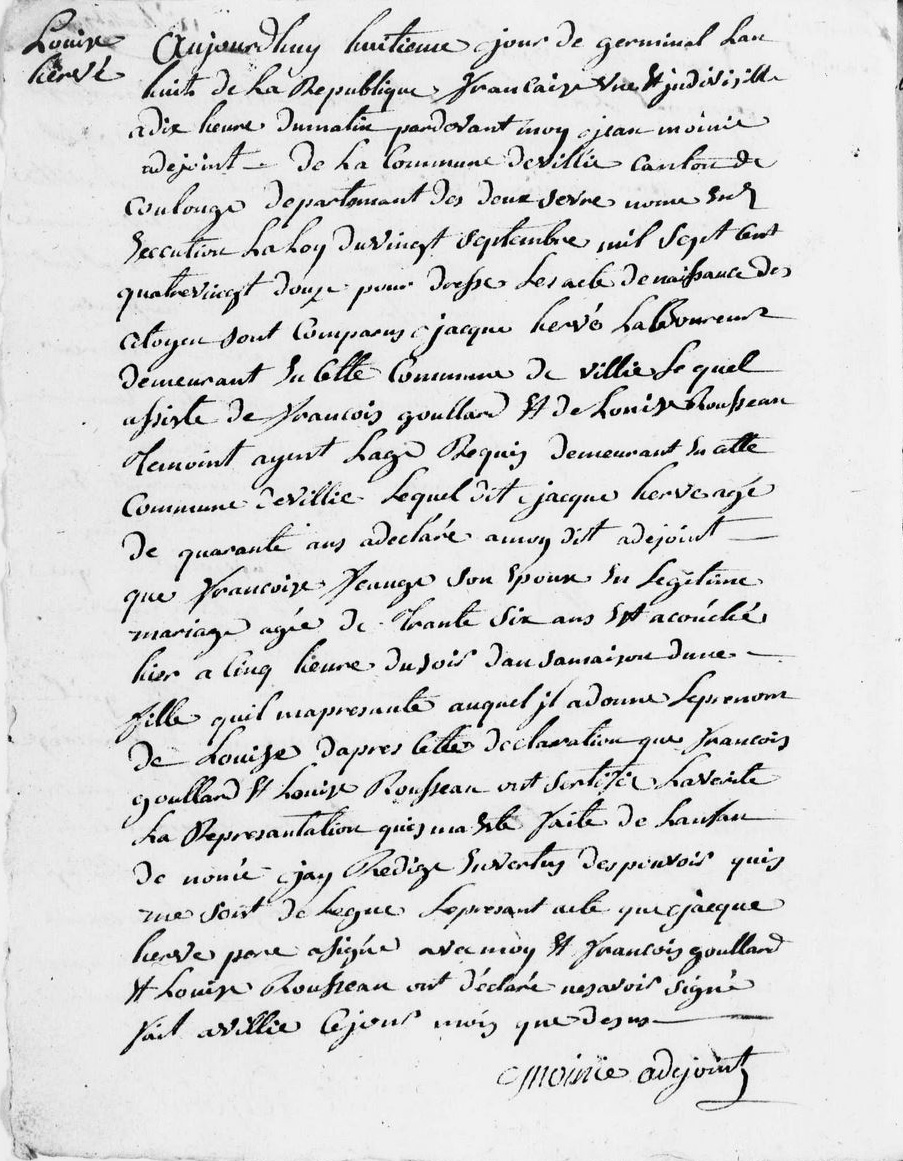 Louise
hervé
Aujourdhuy huitieme jour de germinal Lan
huit de La Republique francaise une et jndivisille
a dix heure dumatin pardevant moy jean moinie
adejoint de La Commune de villie canton de
Coulonge departemant des deux sevre nome En
Execution La Loy du vingt septembre mil sept cent
quatrevingt douze pour dresse Les acte de naissance des
citoyen sont Comparus jacque hervé Laboureur
demeurant En Cette Commune de villie Le quel
assiste de francois goullard et de Louise Rousseau
temoint ayent Lage Requis demeurant En cette
Commune de villie Lequel dit jacque herve agé
de quarante ans a declaré a moy dit adejoint
que francoise son Epouse En Legitime
mariage agée de trante six ans Et acouché
hier a Cinq heure du soir dan sa maison dune
fille quil mapresante auquel jl a donne Le prenom
de Louise dapres Cette declaration que francois
goullard et Louise Rousseau ont sertifie La verite
La Represantation qui ma Ete faite de Lanfan
de nomé jay Redige En vertus des pouvoir quis
me sont de Legue Le presant acte que jacque
herve pere a signe avec moy et francois goullard
et Louise Rousseau ont déclaré ne savoir signé
fait a villie Ce jour mois que desus
moinie adejoint